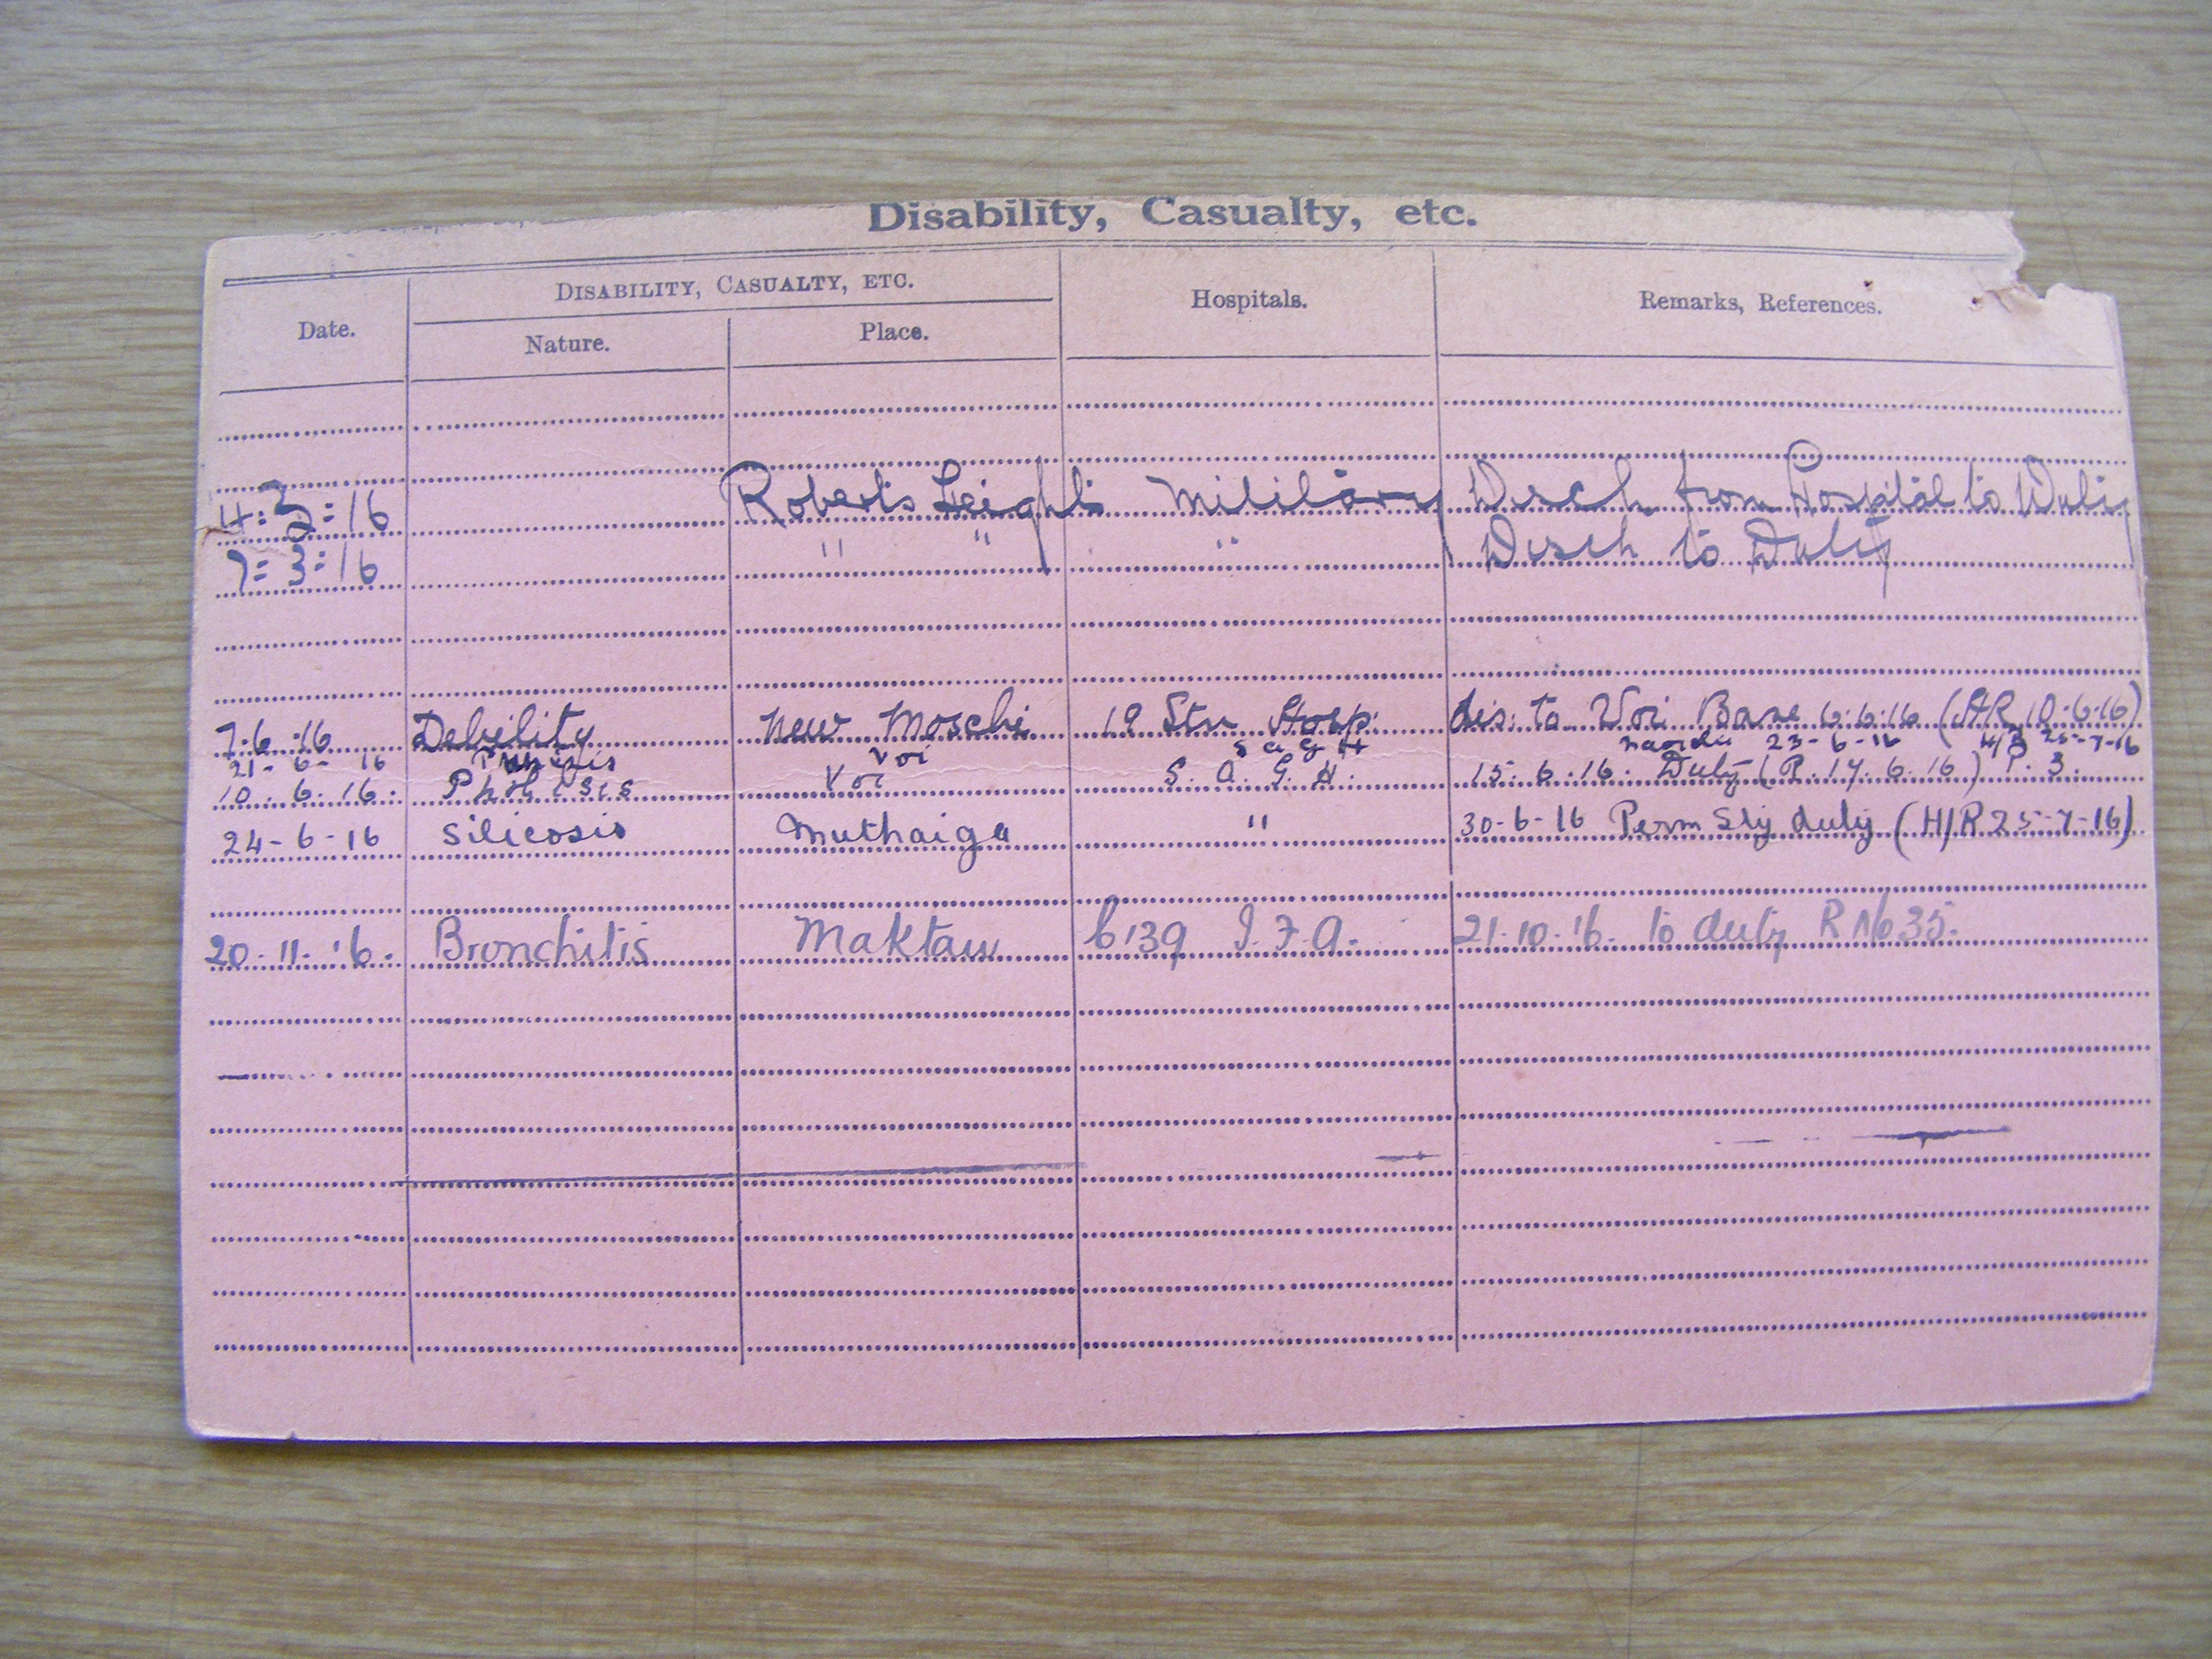 Disability, Casualty, etc.
DISABILITY, CASUALTY, ETC. Hospitals. Remarks, References.
Date. Nature. Place.
4=3=16 Roberts Heights Military Disch from Hospital to Duty
7=3=16 " " " Disch to Duty
7.6.16 Debility New Moschi 19 Stn Hosp. dis. to Voi Base 6.6.16 (HR 10.6.16)
21-6-16 Pthisis Voi S a g H 23-6-16 H/R 25-7-16
10.6.16. Phthisis Voi S. A. G. H. 15.6.16. Duty (R. 17.6.16) P. 3.
24-6-16 Silicosis Muthaiga " 30-6-16 Perm Sty duty (H/R 25-7-16)
20-11-16. Bronchitis Maktau b139 I.F.A. 21.10.16. to duty R No 35.